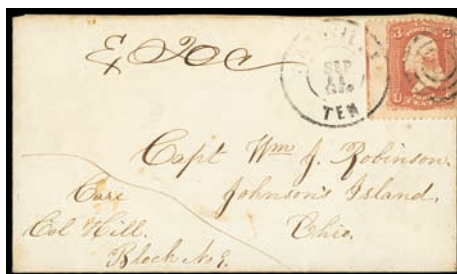 SEP
TEN
3 3
U
Capt Wm J. Robinson.
Johnson's Island,
Ohio.
Care
Col Hill.
Block No 9.